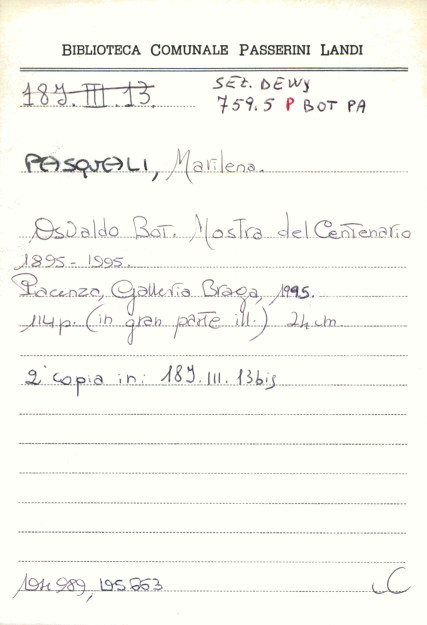 BIBLIOTECA COMUNALE PASSERINI LANDI
18J.III.13
SEZ. DEWY
759.5 P BOT PA
PASQUALI, Marilena.
Osvaldo Bot. Mostra del Centenario
1895-1995.
Piacenza, Galleria Braga, 1995.
114 p. (in gran parte ill.) 24 cm.
2ª copia in: 18J.III.13bis
194989, 195263